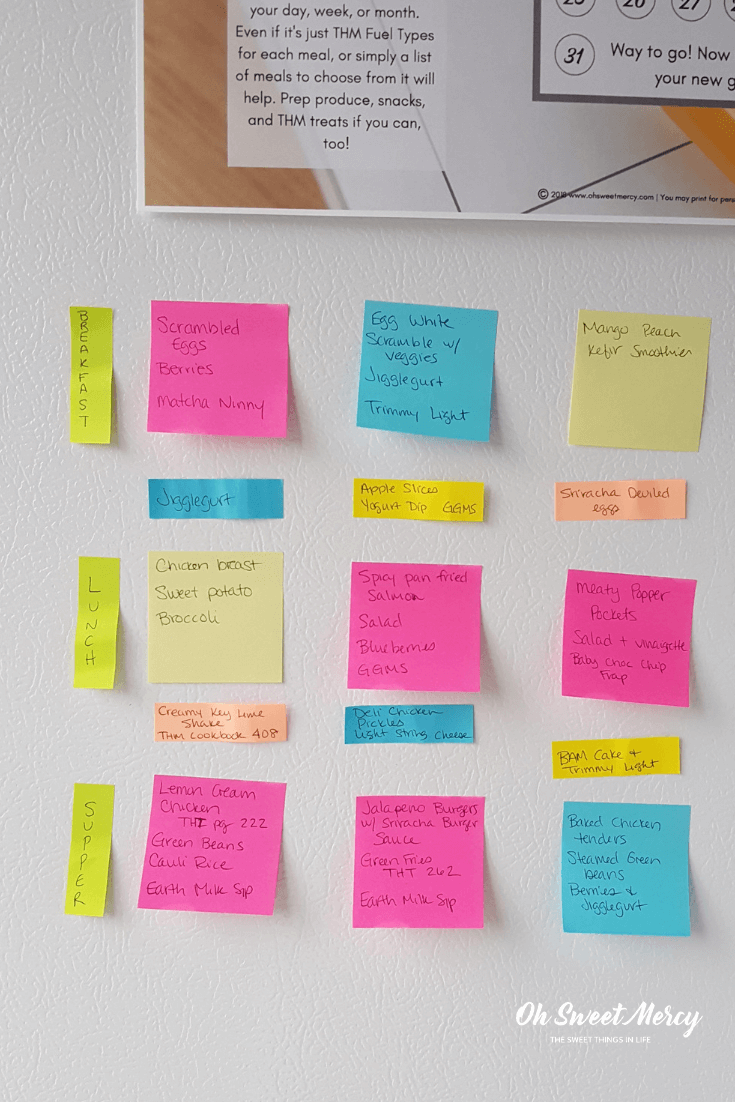 your day, week, or month.
Even if it's just THM Fuel Types
for each meal, or simply a list
of meals to choose from it will
help. Prep produce, snacks,
and THM treats if you can,
too!
26
27
31
Way to go! Now
your new g
© 2019 www.ohsweetmercy.com | You may print for pers
BREAKFAST
Scrambled
Eggs
Berries
Matcha Ninny
Egg White
Scramble w/
veggies
Jigglegurt
Trimmy Light
Mango Peach
Kefir Smoothies
Jigglegurt
Apple Slices
Yogurt Dip GGMS
Sriracha Deviled
eggs
LUNCH
Chicken breast
Sweet potato
Broccoli
Spicy pan fried
Salmon
Salad
Blueberries
GGMS
Meaty Popper
Pockets
Salad + vinaigette
Baby Choc Chip
Frap
Creamy Key Lime
Shake
THM Cookbook 408
Deli Chicken
Pickles
Light String Cheese
BAM Cake +
Trimmy Light
SUPPER
Lemon Cream
Chicken
THT pg 222
Green Beans
Cauli Rice
Earth Milk Sip
Jalapeno Burgers
w/ Sriracha Burger
Sauce
Green Fries
THT 262
Earth Milk Sip
Baked Chicken
tenders
Steamed Green
beans
Berries &
Jigglegurt
Oh Sweet Mercy
THE SWEET THINGS IN LIFE